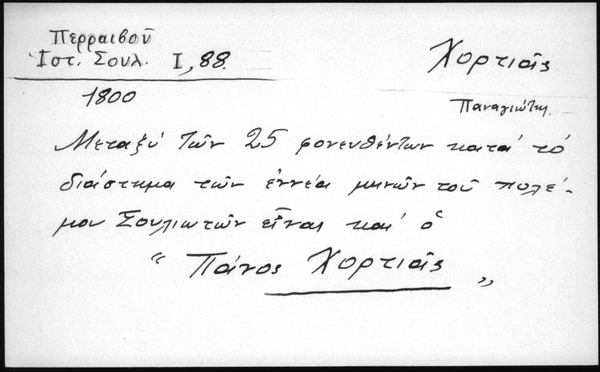 Περραιβοῦ
Ἱστ. Σουλ. I, 88.
Χορτιᾶς
Παναγιώτη.
1800
Μεταξύ τῶν 25 φονευθέντων κατά τό
διάστημα τῶν ἐννέα μηνῶν τοῦ πολέ-
μου Σουλιωτῶν εἶναι καί ὁ
“ Πάνος Χορτιᾶς „